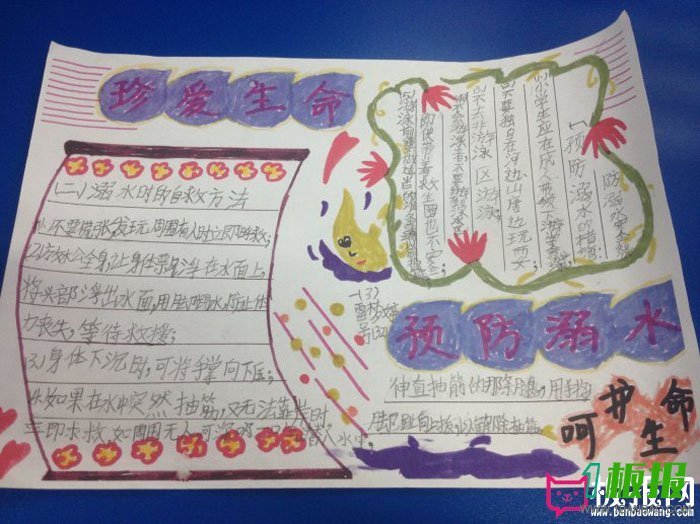 珍爱生命
(二)溺水时的自救方法
1.不要慌张,发现周围有人时立即呼救;
2.放松全身,让身体漂浮在水面上,
将头部浮出水面,用脚踢水,防止体
力丧失,等待救援;
3.身体下沉时,可将手掌向下压;
4.如果在水中突然抽筋,又无法靠岸时,
立即求救,如周围无人,可深吸一口气潜入水中,
伸直抽筋的那条腿,用手将
脚趾向上扳,以解除抽筋。
防溺水
一、预防溺水的措施
(1)小学生应在成人带领下游
(2)不要独自在河边、山塘边玩耍;
(3)不去非游泳区游泳;
即使带着救生圈也不安全;
预防溺水
呵护生命
板报网
www.banbaowang.com